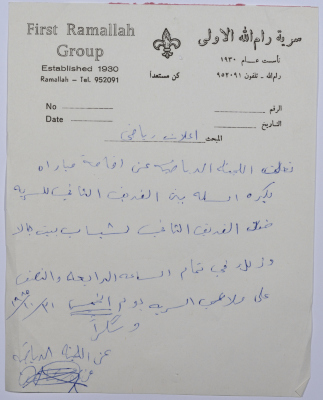 First Ramallah Group
سرية رام الله الاولى
Established 1930
تأست عام ١٩٣٠
Ramallah - Tel. 952091
كن مستعداً
رام الله - تلفون ٩٥٢٠٩١
No
الرقم
Date
التاريخ
المبحث اعلان رياضي
تعلن اللجنة الرياضية عن اقامة مباراه
بكرة السلة بين الفريق الثاني للسرية
ضد الفريق الثاني لشباب بيت جالا
وذلك في تمام الساعة الرابعة والنصف
على ملاعب السرية يوم الخميس
وشكراً
عن اللجنة الرياضية